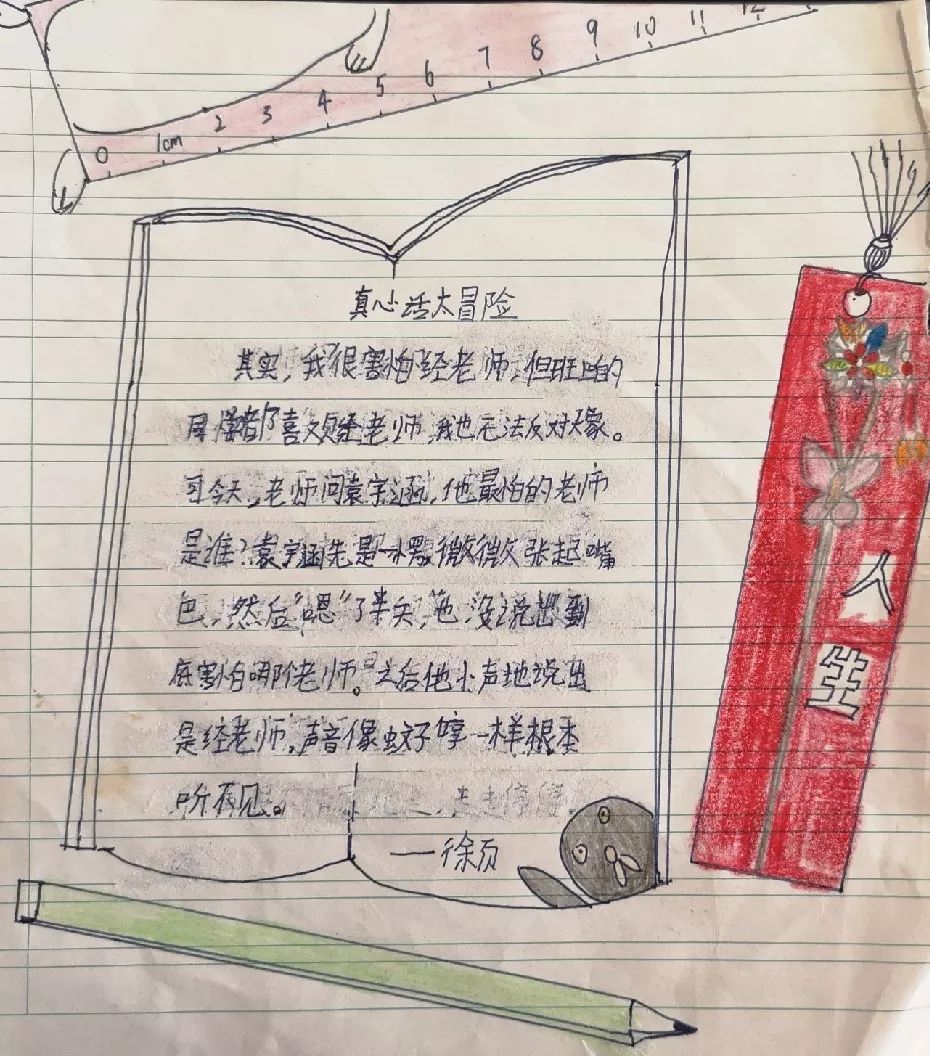 0 1cm 2 3 4 5 6 7 8 9 10 11 12
真心话太冒险
其实,我很害怕经老师,但班上的
同学都喜欢经老师,我也无法反对大家。
可今天,老师问袁宇涵,他最怕的老师
是谁?袁宇涵先是 微微张起嘴
巴,然后“嗯”了半天,也没说出到
底害怕哪个老师。之后他小声地说出
是经老师,声音像蚊子哼一样根本
听不见。
——徐页
人
生